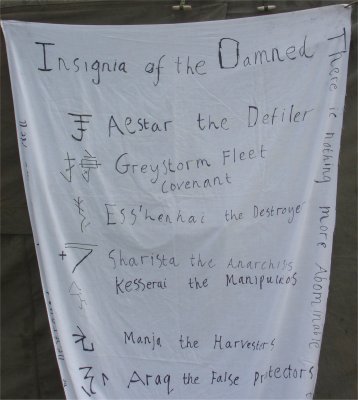 Insignia of the Damned
Aestar the Defiler
Greystorm Fleet
Covenant
Ess'henhai the Destroye
Sharista the Anarchists
Kesserai the
Manja the Harvesters
Araq the False Protectors
There is nothing more Abominable